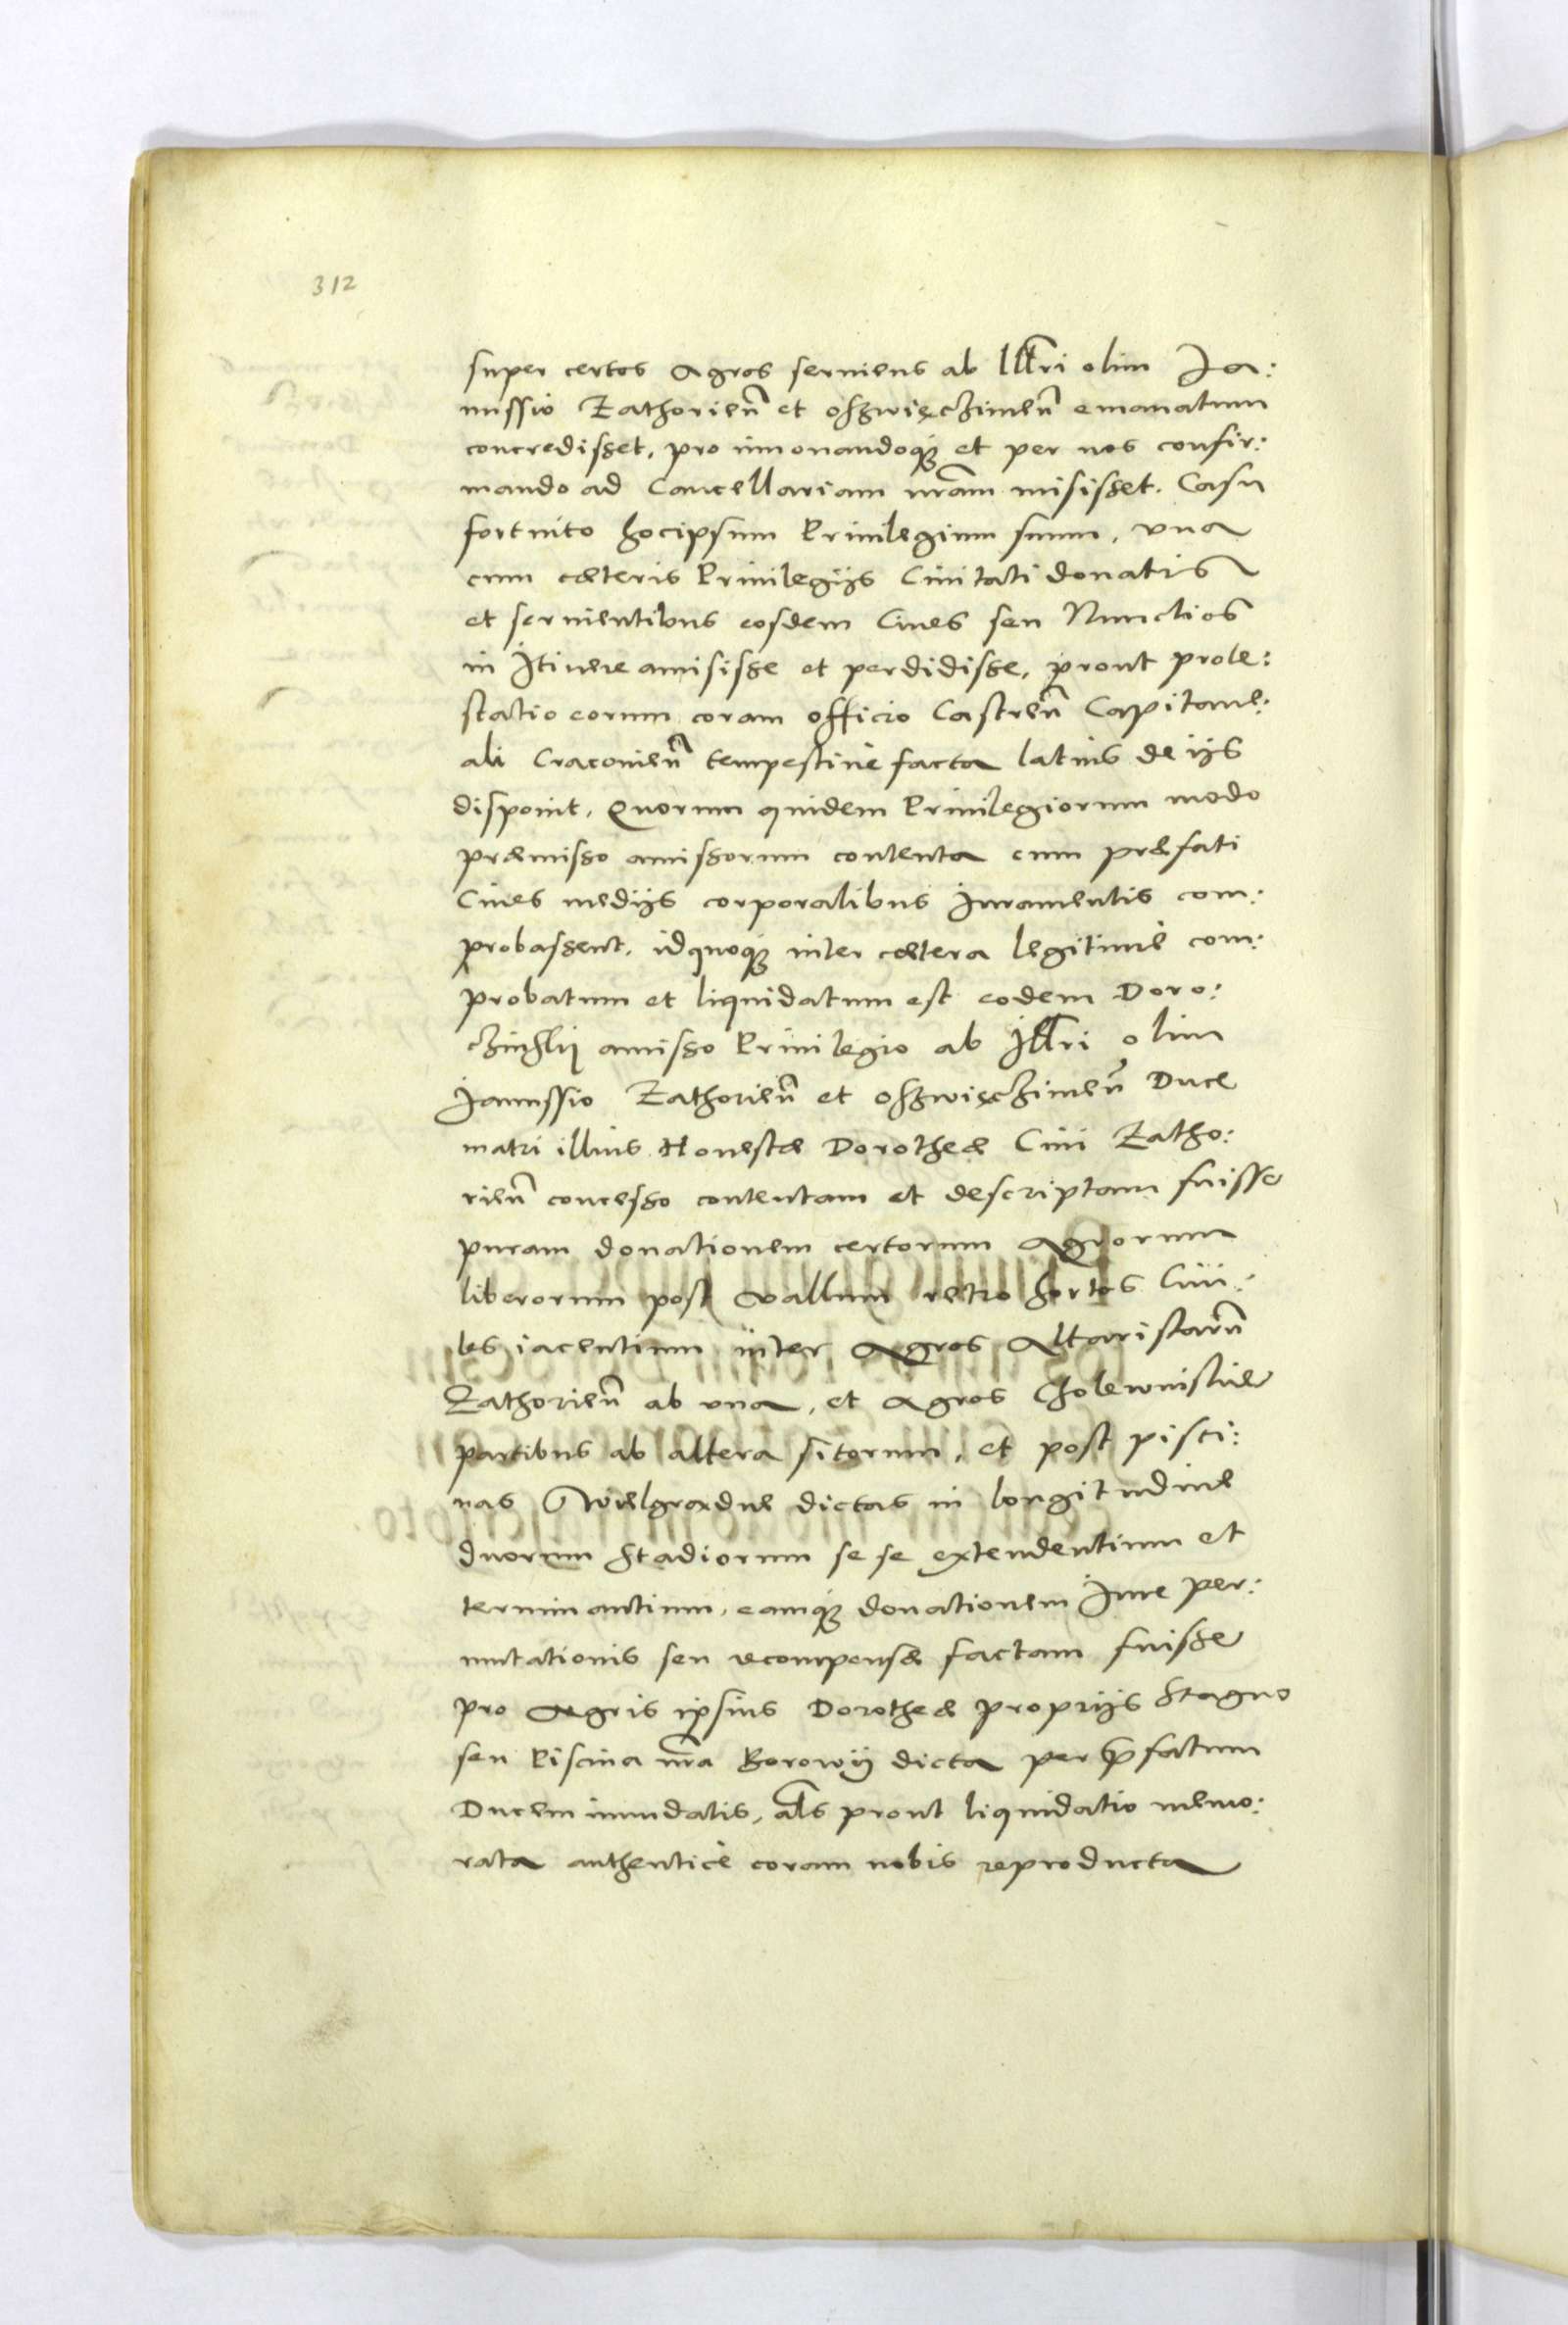 312
super certos Agros seruiens ab Illri olim Ia:
nussio Zathorien̄ et Oszwięczimen̄ emanatum
concredisset, pro innouandoq; et per nos confir:
mando ad Cancellariam nr̄am misisset. Casu
fortuito hocipsum Priuilegium suum, vna
cum cæteris Priuilegijs Ciuitati donatis
et seruientibus eosdem Ciues seu Nunctios
in Itinere amisisse et perdidisse, prout prote:
statio eorum coram officio Castren̄ Capitane:
ali Cracouien̄ tempestiuè facta latius de ijs
disponit. Quorum quidem Priuilegiorum modo
præmisso amissorum contenta cum præfati
Ciues medijs corporalibus Iuramentis com:
probassent, idquoq; inter cætera legitimè com:
probatum et liquidatum est eodem Doro:
amisso Priuilegio ab Illri olim
Ianussio Zathorien̄ et Oszwięczimen̄ Duce
matri illius Honestæ Dorotheæ Ciui Zatho:
rien̄ concesso contentam et descriptam fuisse
puram donationem certorum Agrorum
liberorum post vallum retro hortos Ciui:
les iacentium inter Agros Altaristarū
Zathorien̄ ab vna, et Agros Cholewinskie
partibus ab altera sitorum, et post pisci:
nas Wielgradne dictas in longitudine
duorum Stadiorum se se extendentium et
terminantium, eamq; donationem Iure per:
mutationis seu recompensæ factam fuisse
pro Agris ipsius Dorotheæ proprijs Stagno
seu Piscina nr̄a Borowij dicta per p̄fatum
Ducem inundatis, al̄s prout liquidatio memo:
rata authenticè coram nobis reproducta